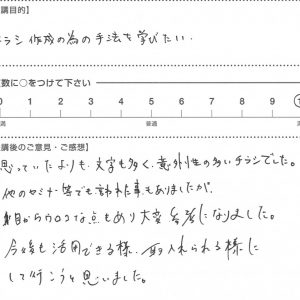 講目的】
チラシ作成の為の手法を学びたい。
数に○をつけて下さい
0 1 2 3 4 5 6 7 8 9
満 普通
講後のご意見・ご感想】
思っていたよりも、文字も多く、意外性の多いチラシでした。
他のセミナー等でも言われた事もありましたが、
目からウロコな点もあり大変参考になりました。
今後も活用できる様、取入れられる様に
して行こうと思いました。